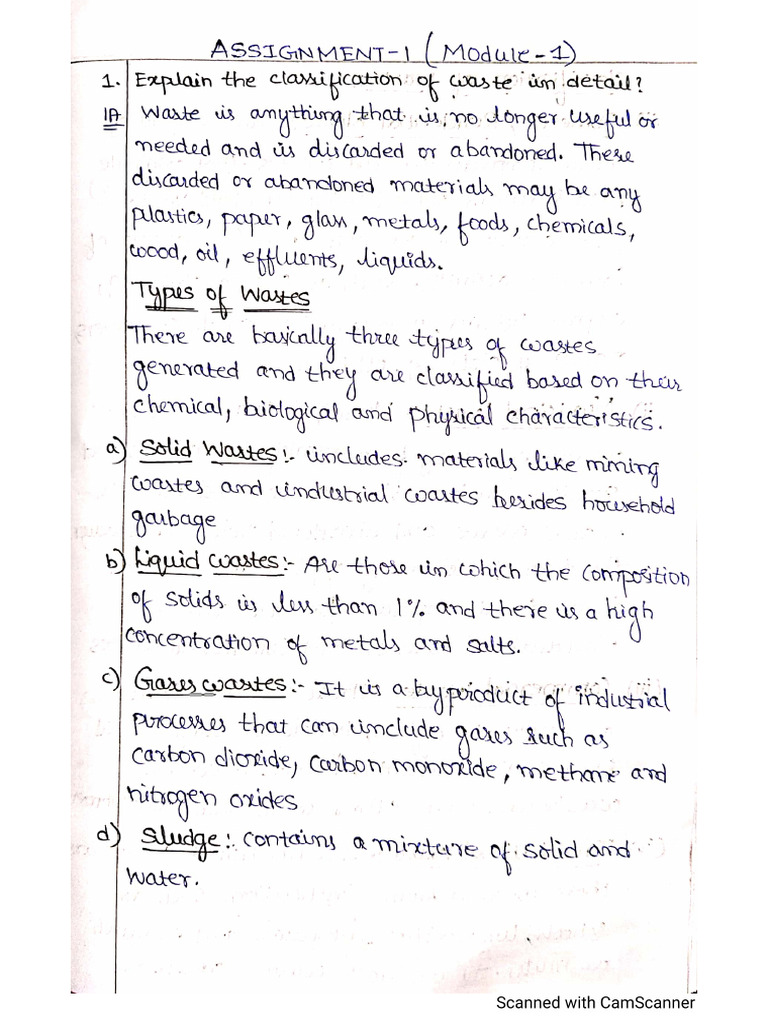 ASSIGNMENT-1 (Module-1)
1. Explain the classification of waste in detail?
1A Waste is anything that is no longer useful or
needed and is discarded or abandoned. These
discarded or abandoned materials may be any
plastics, paper, glass, metals, foods, chemicals,
wood, oil, effluents, liquids.
Types of Wastes
There are basically three types of wastes
generated and they are classified based on their
chemical, biological and physical characteristics.
a) Solid Wastes:- includes materials like mining
wastes and industrial wastes besides household
garbage
b) Liquid wastes:- Are those in which the composition
of solids is less than 1% and there is a high
concentration of metals and salts.
c) Gases wastes:- It is a byproduct of industrial
processes that can include gases such as
carbon dioxide, carbon monoxide, methane and
nitrogen oxides
d) Sludge:- contains a mixture of solid and
water.
Scanned with CamScanner